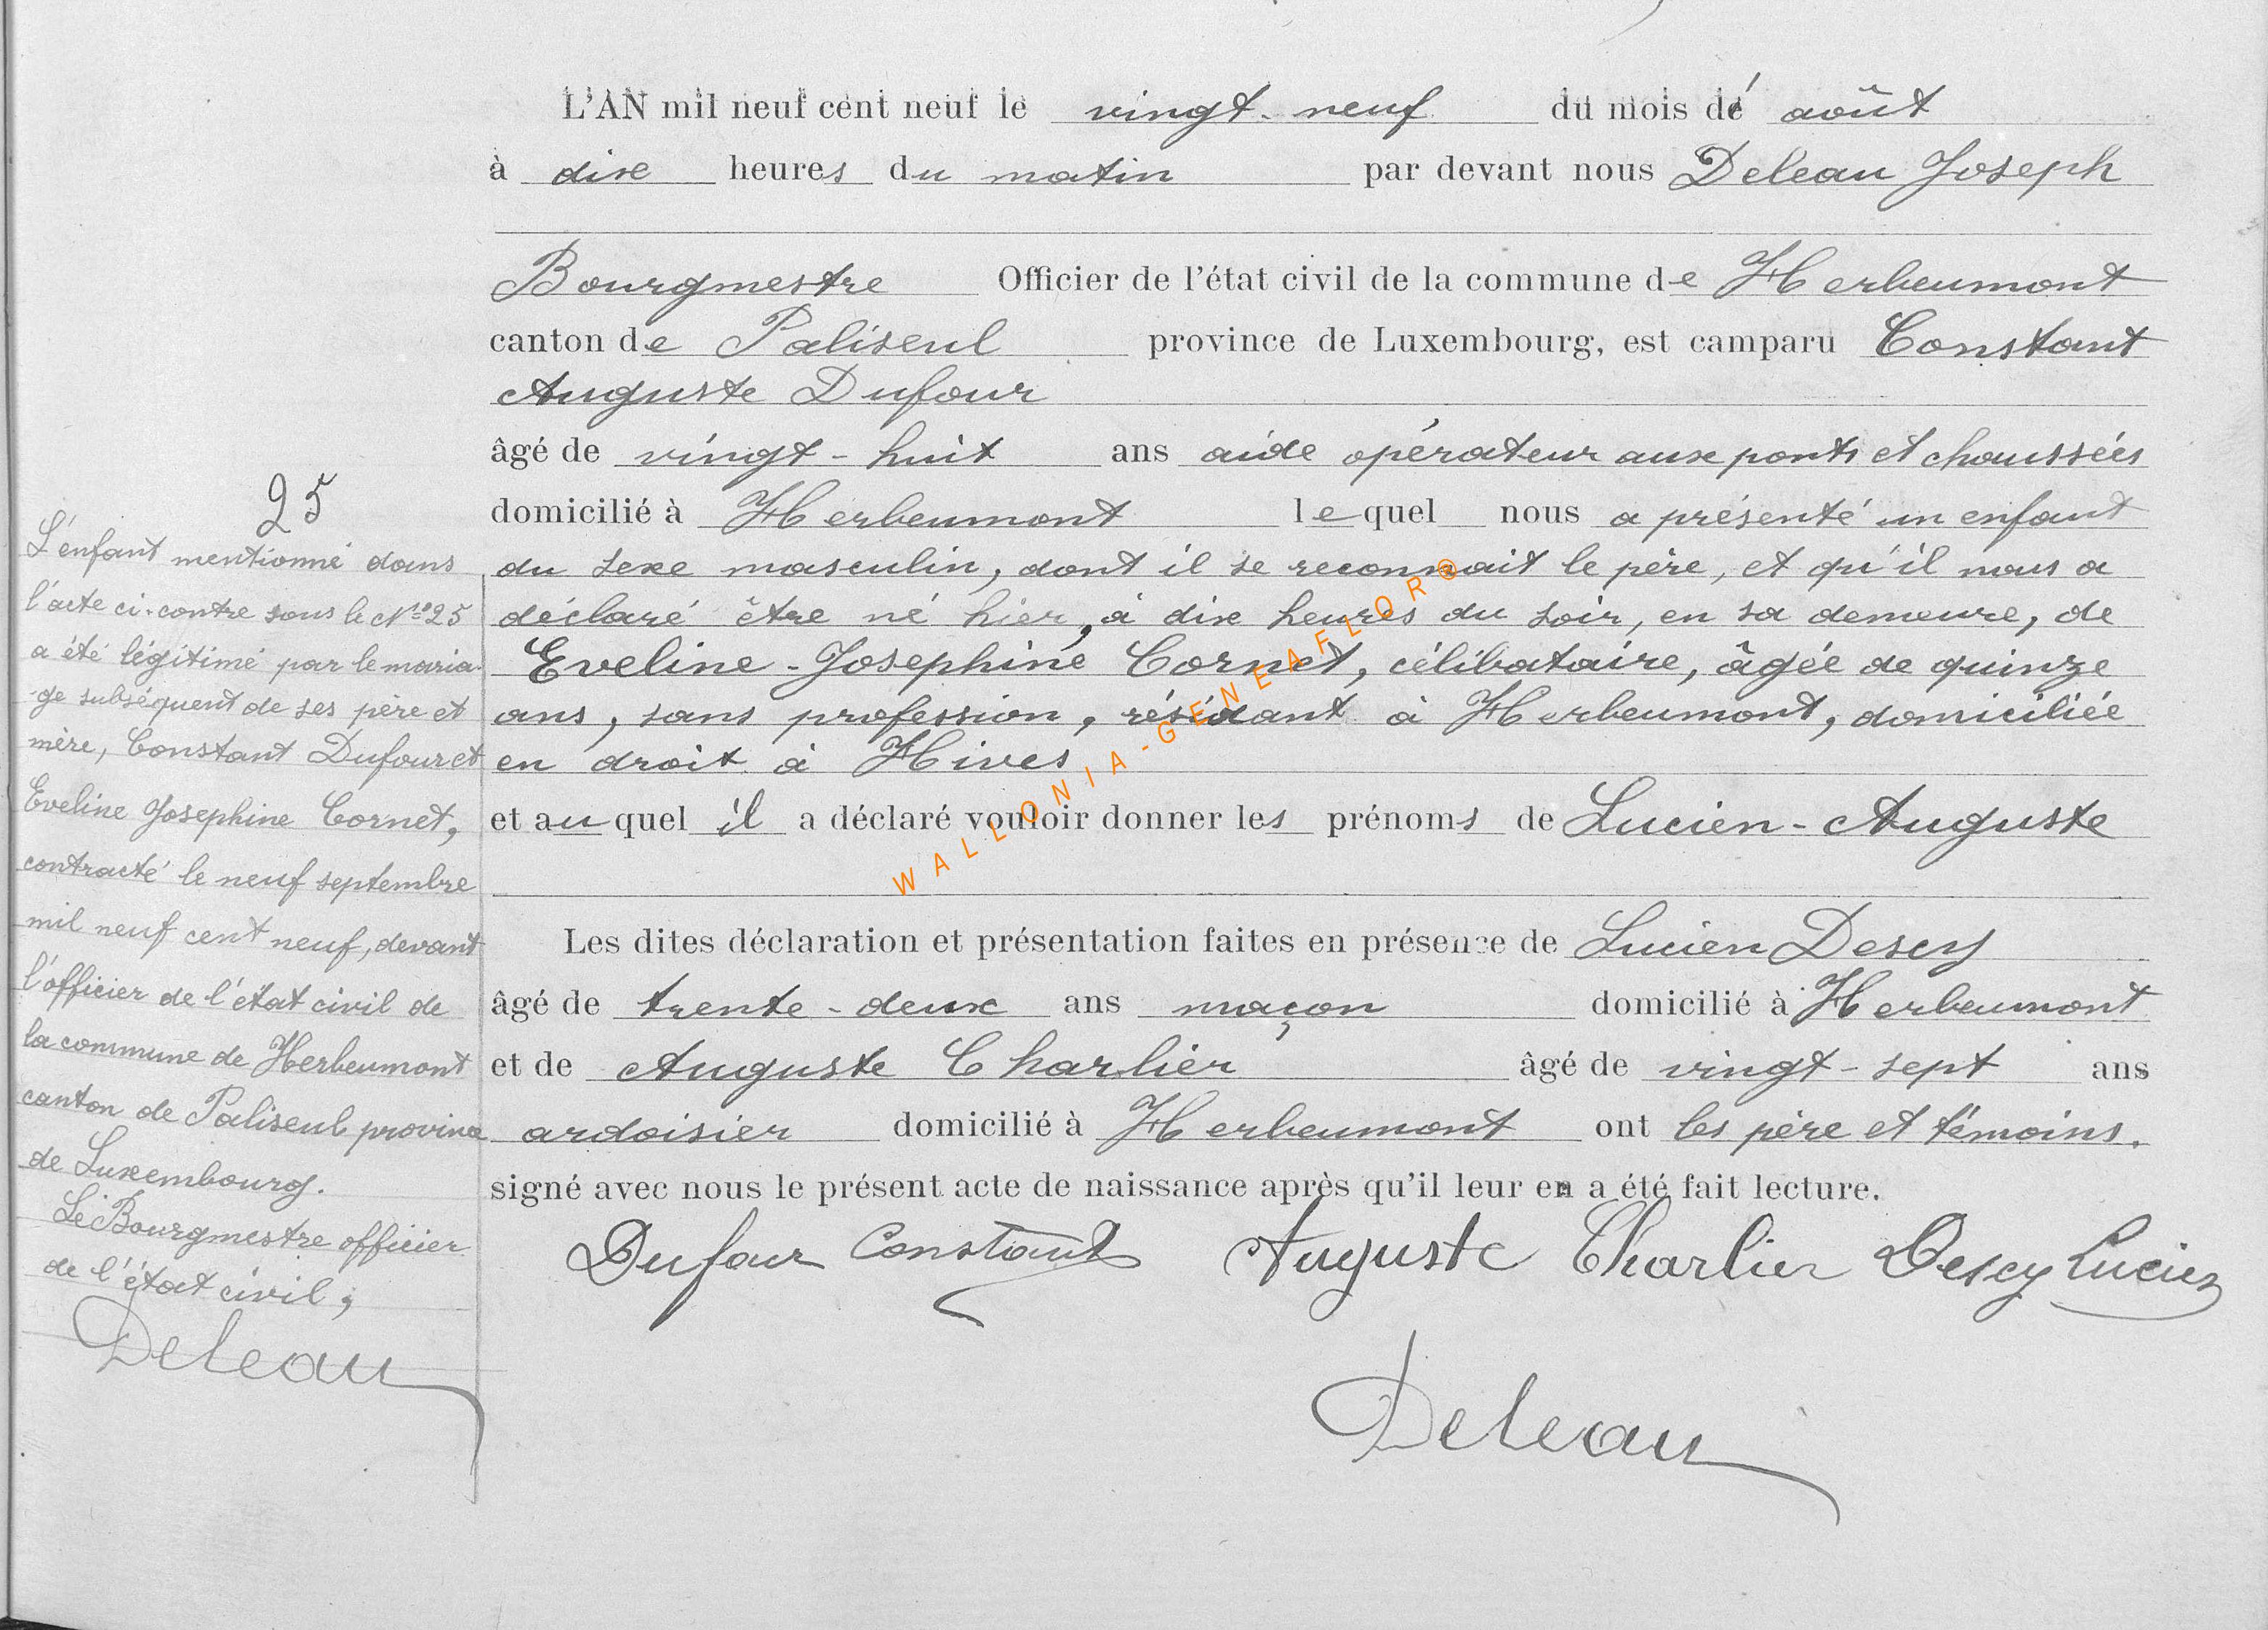 L'AN mil neuf cent neuf le vingt-neuf du mois de août
à dix heures du matin par devant nous Deleau Joseph
Bourgmestre Officier de l'état civil de la commune de Herbeumont
canton de Paliseul province de Luxembourg, est camparu Constant
Auguste Dufour
âgé de vingt-huit ans aide opérateur aux ponts et chaussées
domicilié à Herbeumont lequel nous a présenté un enfant
du sexe masculin, dont il se reconnait le père, et qu'il nous a
déclaré être né hier, à dix heures du soir, en sa demeure, de
Eveline-Josephine Cornet, célibataire, âgée de quinze
ans, sans profession, résidant à Herbeumont, domiciliée
en droit à Hives
et auquel il a déclaré vouloir donner les prénoms de Lucien-Auguste
Les dites déclaration et présentation faites en présence de Lucien Descy
âgé de trente-deux ans maçon domicilié à Herbeumont
et de Auguste Charlier âgé de vingt-sept ans
ardoisier domicilié à Herbeumont ont les père et témoins.
signé avec nous le présent acte de naissance après qu'il leur en a été fait lecture.
Dufour Constant Auguste Charlier Descy Lucien
Deleau
25
L'enfant mentionné dans
l'acte ci-contre sous le N° 25
a été légitimé par le maria-
-ge subséquent de ses père et
mère, Constant Dufour et
Eveline Josephine Cornet,
contracté le neuf septembre
mil neuf cent neuf, devant
l'officier de l'état civil de
la commune de Herbeumont
canton de Paliseul province
de Luxembourg.
Le Bourgmestre officier
de l'état civil,
Deleau
WALLONIA-GENEAFLOR®